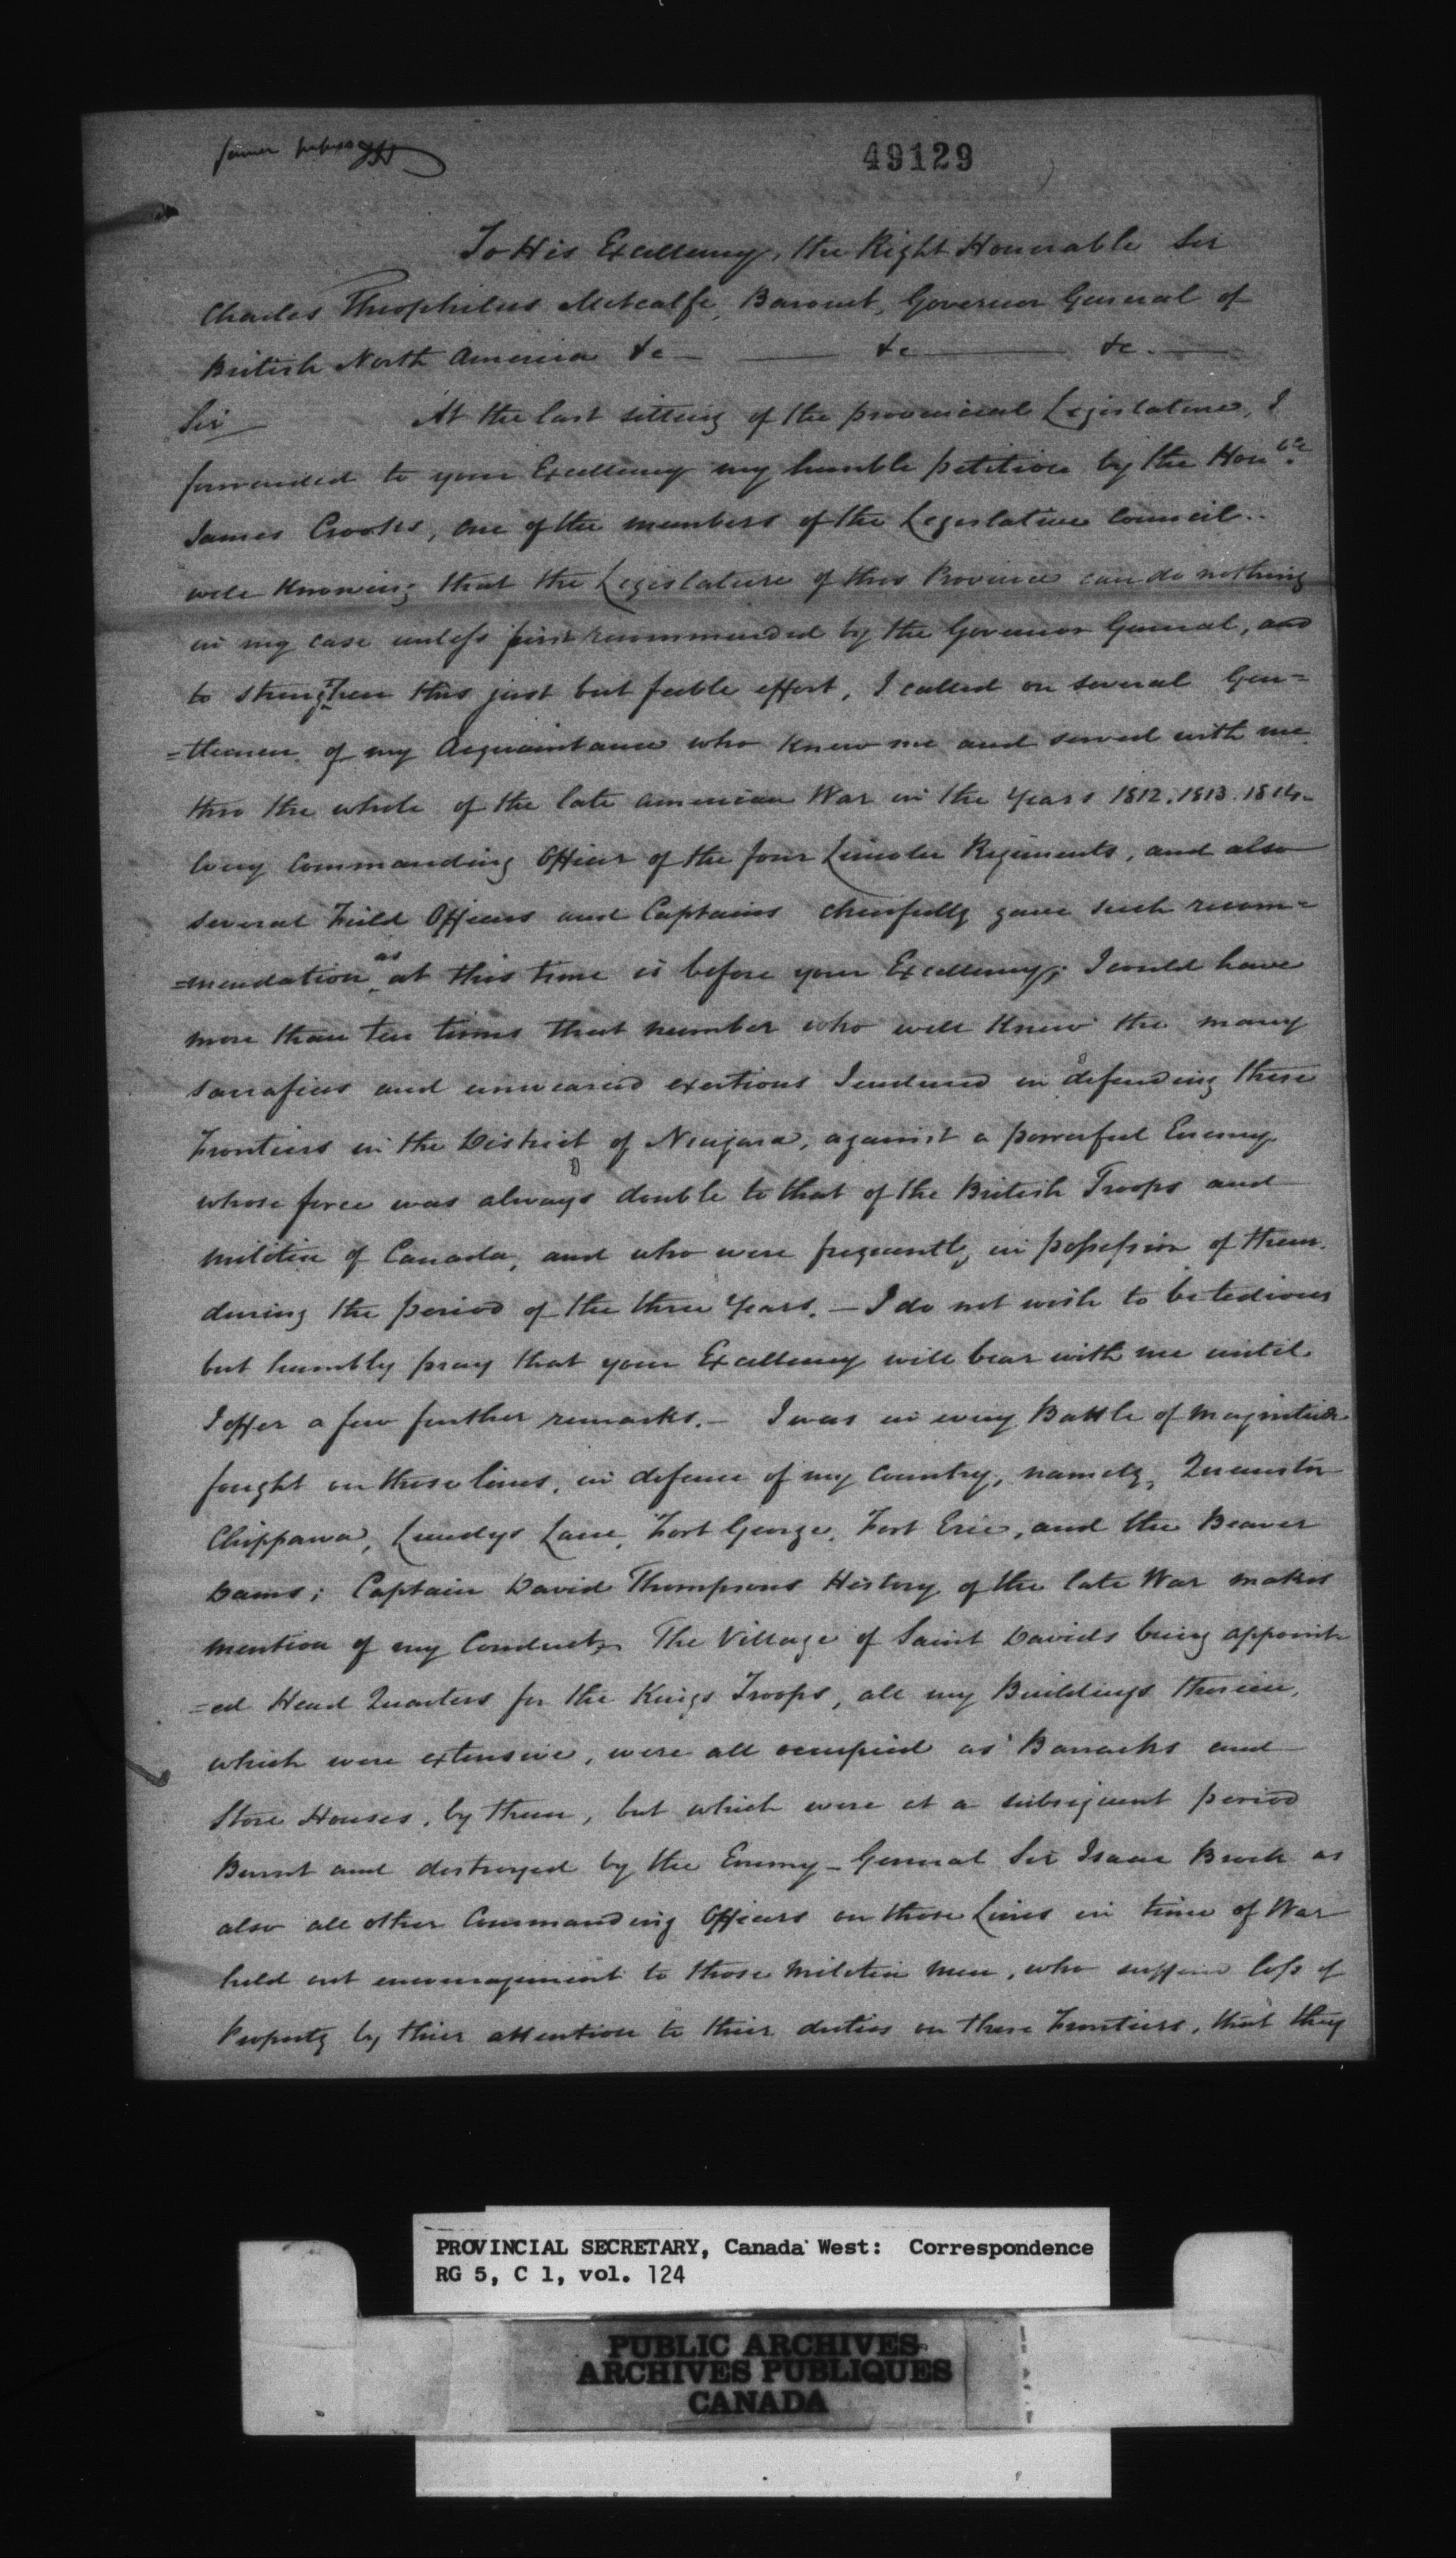 former papers
49129
To His Excellency, the Right Honorable Sir
Charles Theophilus Metcalfe, Baronet, Governor General of
British North America &c — &c — &c. —
Sir At the last sitting of the provincial Legislature, I
forwarded to your Excellency my humble petition by the Honble.
James Crooks, one of the members of the Legislative Council..
well knowing that the Legislature of this Province can do nothing
in my case unless first recommended by the Governor General, and
to strengthen this just but feeble effort, I called on several Gen=
=tlemen of my Acquaintance who knew me and served with me
thro the whole of the late american War in the Years 1812. 1813. 1814.
Every Commanding Officer of the four Lincoln Regiments, and also
several Field Officers and Captains chearfully gave such recom=
=mendation as at this time is before your Excellency; I could have
more than ten times that number who well knew the many
sacrafices and unwearied exertions I endured in defending these
Frontiers in the District of Niagara, against a powerful Enemy
whose force was always double to that of the British Troops and
militia of Canada, and who were frequently in possession of them.
during the period of the three Years. — I do not wish to be tedious
but humbly pray that your Excellency will bear with me until
I offer a few further remarks. — I was in every Battle of Magnitude
fought on these lines, in defence of my Country, namely, Queenston
Chippawa, Lundys Lane, Fort George, Fort Erie, and the Beaver
Dams; Captain David Thompsons History of the late War makes
mention of my Conduct, The Village of Saint Davids being appoint
=ed Head Quarters for the Kings Troops, all my Buildings therein,
which were extensive, were all occupied as Barracks and
Store Houses, by them, but which were at a subsequent period
Burnt and destroyed by the Enemy — General Sir Isaac Brock as
also all other Commanding Officers on those Lines in time of War
held out encouragement to those militia men, who suffered loss of
Property by thier attention to thier duties on these Frontiers, that they
PROVINCIAL SECRETARY, Canada West: Correspondence
RG 5, C 1, vol. 124
PUBLIC ARCHIVES
ARCHIVES PUBLIQUES
CANADA